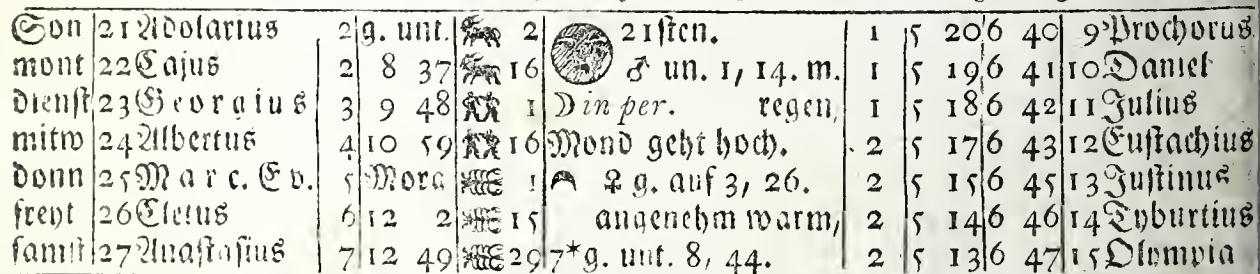 Son 21 Adolarius 2 g. unt. 2 21sten. 1 5 20 6 40 9 Prochorus
mont 22 Cajus 2 8 37 16 ♂ un. 1, 14. m. 1 5 19 6 41 10 Daniel
dienst 23 Georgius 3 9 48 1 ☽ in per. regen, 1 5 18 6 42 11 Julius
mitw 24 Albertus 4 10 59 16 Mond geht hoch. 2 5 17 6 43 12 Eustachius
donn 25 Marc. Ev. 5 Morg 1 ♀ g. auf 3, 26. 2 5 15 6 45 13 Justinus
freyt 26 Cletus 6 12 2 15 angenehm warm, 2 5 14 6 46 14 Tyburtius
samst 27 Anastasius 7 12 49 29 7* g. unt. 8, 44. 2 5 13 6 47 15 Olympia